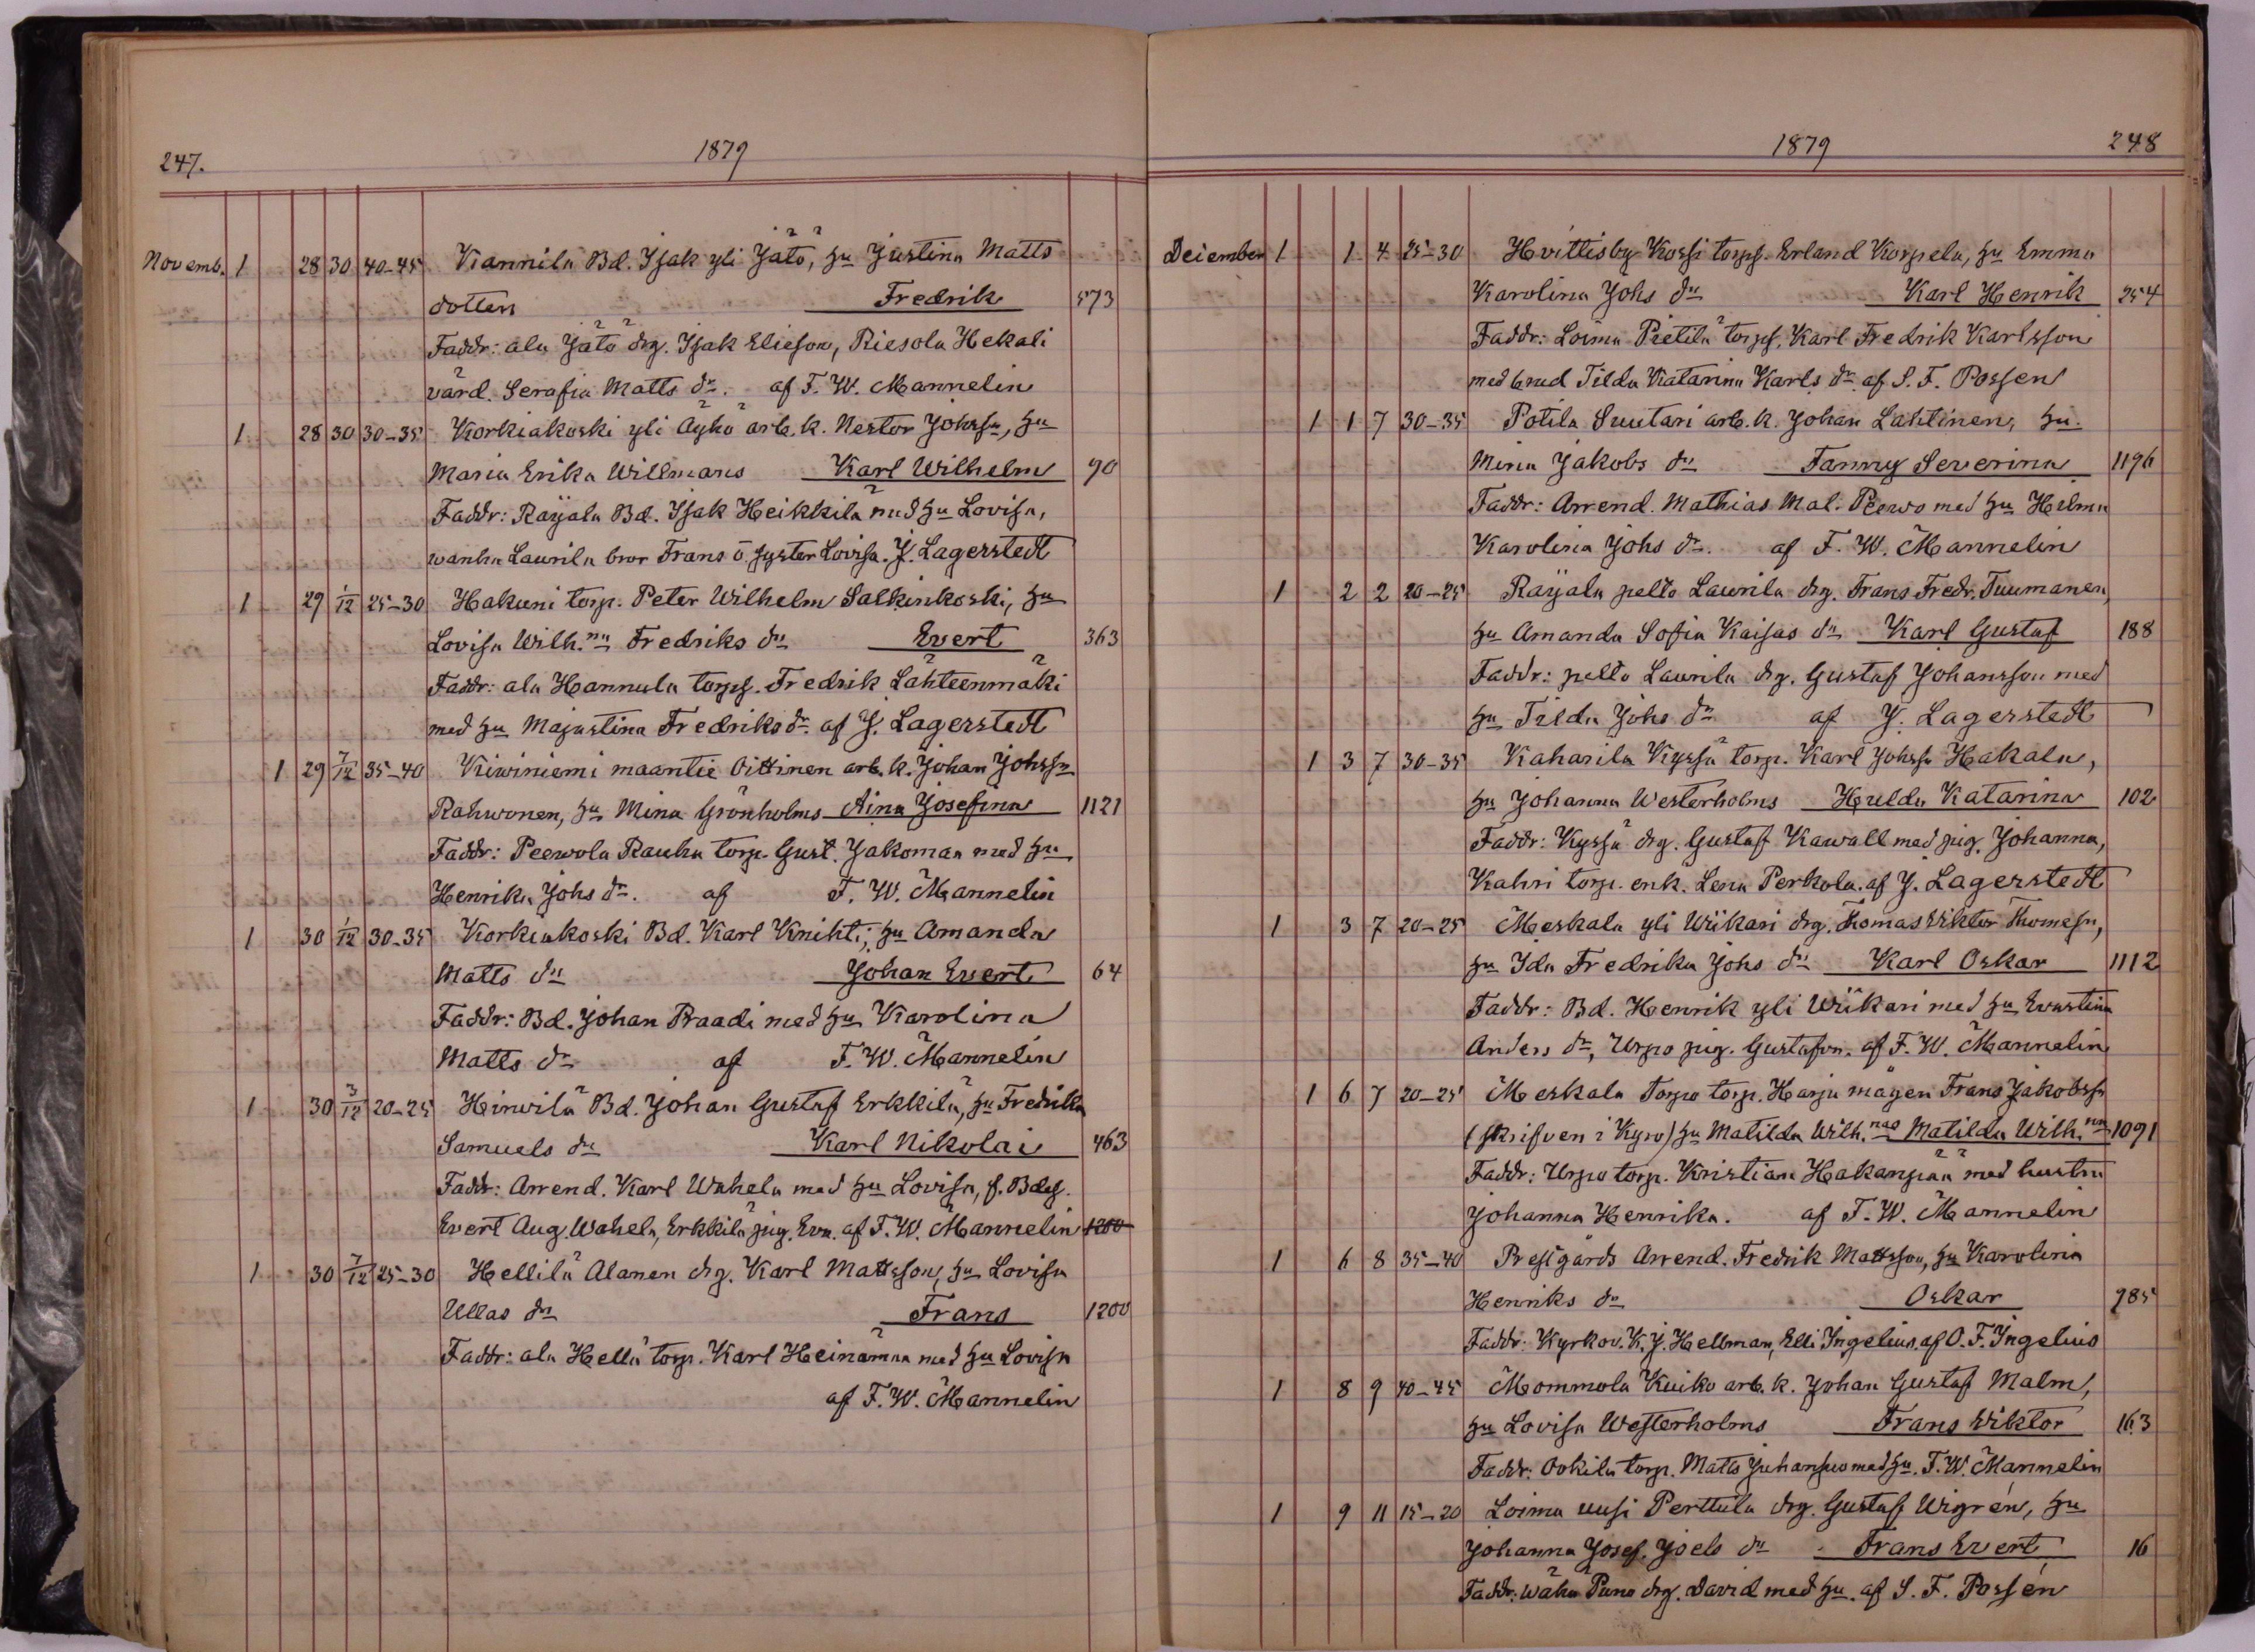 247.
1879
Novemb. 1 28 30 40-45 Kannila Bd. Isak yli Jätö, hu Justina Matts
dotten Fredrik 573
Faddr: ala Jätö drg. Isak Elieson, Riesola Hekali
värd. Serafia Matts dr. af F. W. Mannelin
1 28 30 30-35 Korkiakoski yli Äyhö arb. k. Nestor Johssn, hu
Maria Erika Willmans Karl Wilhelm 90
Faddr: Räyälä Bd. Isak Heikkilä med hu Lovisa,
wanha Laurila bror Frans o. syster Lovisa. J. Lagerstedt
1 29 1/12 25-30 Hakuni torp. Peter Wilhelm Salkinkoski, hu
Lovisa Wilh.na Fredriks dr Evert 363
Faddr: ala Hannula torps. Fredrik Lähteenmäki
med hu Majastina Fredriks dr. af J. Lagerstedt
1 29 7/12 35-40 Kiwiniemi maantie Oittinen arb. k. Johan Johssn
Rahwonen, hu Mina Grönholms Aina Josefina 1121
Faddr: Peewola Rauha torp. Gust. Jakoman med hu
Henrika Johs dr. af F. W. Mannelin
1 30 1/12 30-35 Korkiakoski Bd. Karl Knihti, hu Amanda
Matts dr Johan Evert 64
Faddr: Bd. Johan Raadi med hu Karolina
Matts dr af F. W. Mannelin
1 30 3/12 20-25 Hirwilä Bd. Johan Gustaf Erkkilä, hu Fredrika
Samuels dr Karl Nikolai 463
Faddr: Arrend. Karl Wahela med hu Lovisa, f. Bdes.
Evert Aug. Wahela, Erkkilä pig. Eva. af F. W. Mannelin 1200
1 30 7/12 25-30 Hellilä Alanen drg. Karl Mattsson, hu Lovisa
Ullas dr Frans 1200
Faddr: ala Hellä torp. Karl Heinämaa med hu Lovisa
af F. W. Mannelin
1879
248
December 1 1 4 25-30 Hvittisby Kossi torps. Erland Korpela, hu Emma
Karolina Johs dr Karl Henrik 254
Faddr: Loima Pietilä torps. Karl Fredrik Karlsson
med brud Tilda Katarina Karls dr af S. F. Possen
1 1 7 30-35 Potila Suutari arb. k. Johan Lahtinen, hu.
Mina Jakobs dr Fanny Severina 1196
Faddr: Arrend. Mathias Mal. Peewo med hu Hilma
Karolina Johs dr. af F. W. Mannelin
1 2 2 20-25 Räyälä pelto Laurila drg. Frans Fredr. Tuumanen,
hu Amanda Sofia Kaisas dr Karl Gustaf 188
Faddr: pelto Laurila drg. Gustaf Johansson med
hu Tilda Johs dr af J. Lagerstedt
1 3 7 30-35 Kaharila Kyssä torp. Karl Johssn Hakala,
hu Johanna Westerholms Hulda Katarina 102
Faddr: Kyssä drg. Gustaf Kawall med pig. Johanna,
Kahri torp. enk. Lena Perkola. af J. Lagerstedt
1 3 7 20-25 Meskala yli Wiikari drg. Thomas Wiktor Thomesn,
hu Ida Fredrika Johs dr Karl Oskar 1112
Faddr: Bd. Henrik yli Wiikari med hu Evastina
Anders dr, Urpo pig. Gustafva. af F. W. Mannelin
1 6 7 20-25 Meskala Torpo torp. Harju mågen Frans Jakobssn
(skrifven i Kyro) hu Matilda Wilh.nas Matilda Wilh.na 1091
Faddr: Urpo torp. Kristian Hakanpää med hustru
Johanna Henrika. af F. W. Mannelin
1 6 8 35-40 Prestgårds Arrend. Fredrik Mattsson, hu Karolina
Henriks dr Oskar 985
Faddr: Kyrkov. K. J. Hellman, Elli Ingelius. af O. F. Ingelius
1 8 9 40-45 Mommola Kuiko arb. k. Johan Gustaf Malm,
hu Lovisa Westerholms Frans Wiktor 163
Faddr: Ookila torp. Matts Juhansuo med hu. F. W. Mannelin
1 9 11 15-20 Loima uusi Perttula drg. Gustaf Wigrén, hu
Johanna Josef. Joels dr Frans Evert 16
Faddr: wähä Puno drg. David med hu. af S. F. Possén